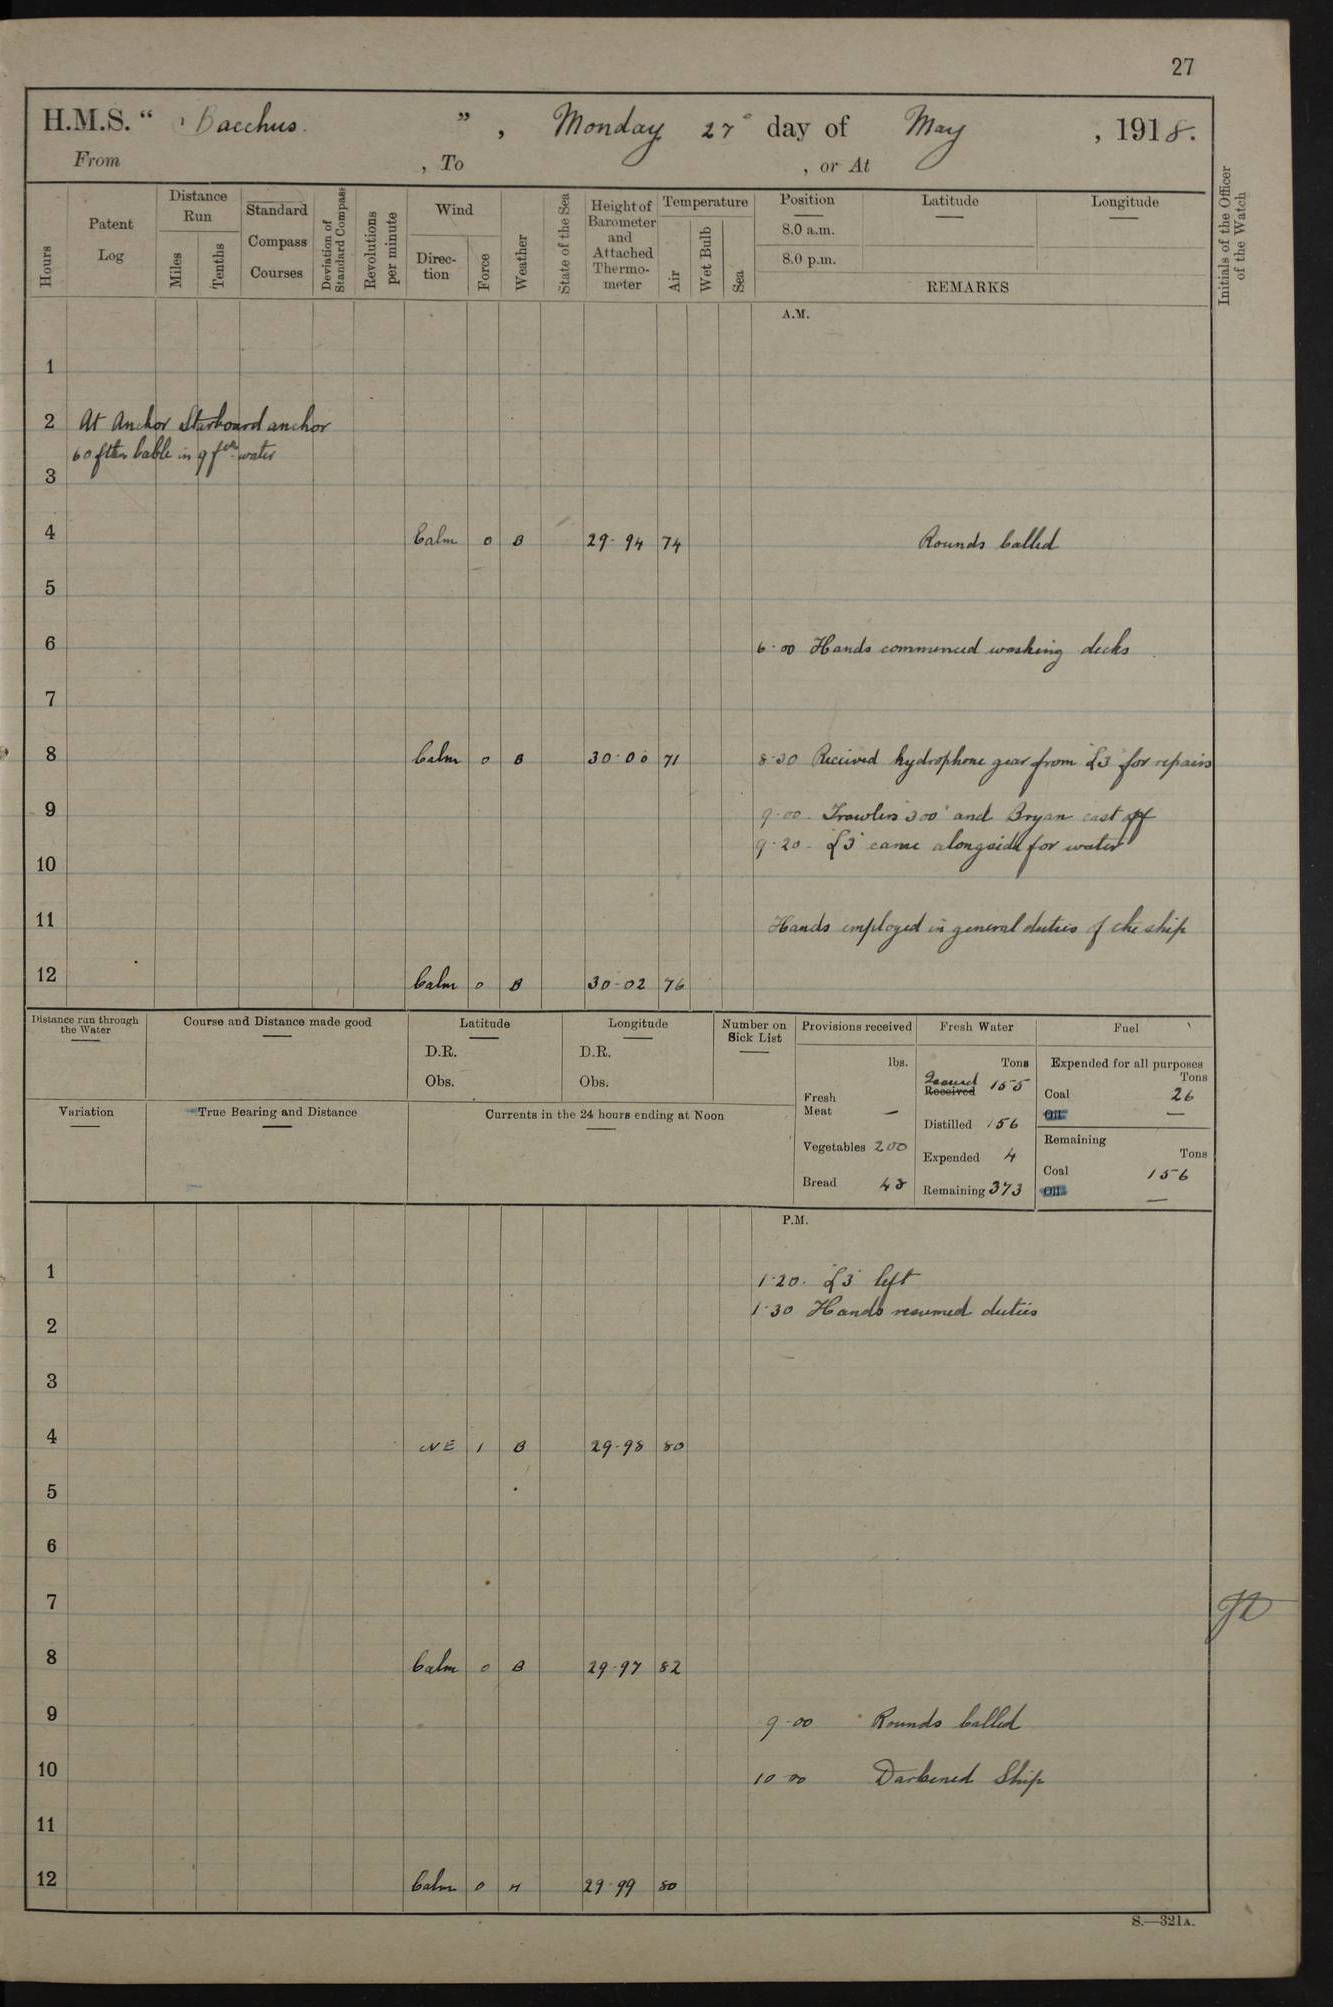 27
H.M.S. " Bacchus. ", Monday 27 day of May, 1918.
From , To , or At
Hours
Patent Log
Distance Run
Miles
Tenths
Standard Compass Courses
Deviation of Standard Compass
Revolutions per minute
Wind
Direction
Force
Weather
State of the Sea
Height of Barometer and Attached Thermometer
Temperature
Air
Wet Bulb
Sea
Position
8.0 a.m.
8.0 p.m.
Latitude
Longitude
REMARKS
Initials of the Officer of the Watch
A.M.
1
2 At Anchor Starboard anchor
60 fthm Cable in 9 fth water
3
4 Calm 0 B 29.94 74 Rounds Called
5
6 6.00 Hands commenced washing decks
7
8 Calm 0 B 30.00 71 8.30 Received hydrophone gear from £3 for repairs
9 9.00 Trawlers 300 and Bryan cast off
9.20 £3 came alongside for water
10
11 Hands employed in general duties of the ship
12 Calm 0 B 30.02 76
Distance run through the Water
Course and Distance made good
Latitude
D.R.
Obs.
Longitude
D.R.
Obs.
Number on Sick List
Variation
True Bearing and Distance
Currents in the 24 hours ending at Noon
Provisions received
lbs.
Fresh Meat —
Vegetables 200
Bread 48
Fresh Water
Tons
Issued Received 155
Distilled 156
Expended 4
Remaining 373
Fuel
Expended for all purposes
Tons
Coal 26
Oil —
Remaining
Tons
Coal 156
Oil —
P.M.
1 1.20. £3 left
1.30 Hands resumed duties
2
3
4 NE 1 B 29.98 80
5
6
7
8 Calm 0 B 29.97 82
9 9.00 Rounds Called
10 10.00 Darkened Ship
11
12 Calm 0 29.99 80
S.—321A.